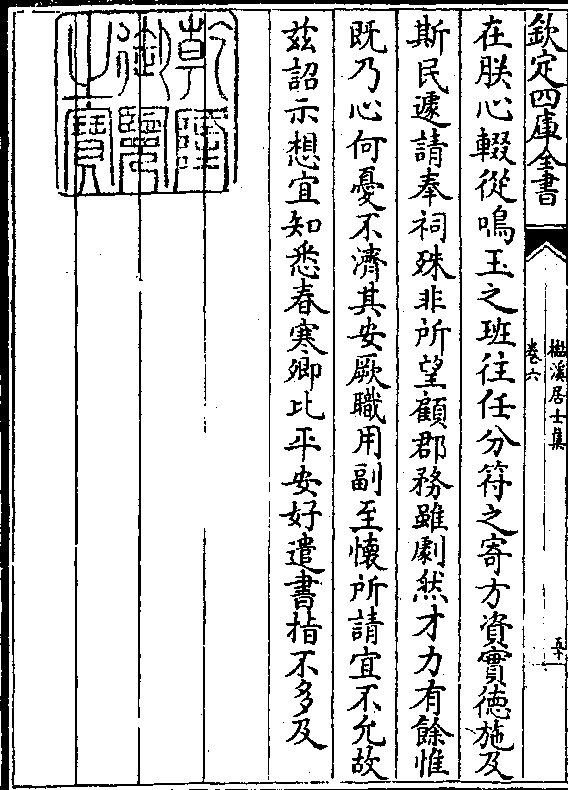 欽定四庫全書
楳溪居士集
卷六
在朕心輟從鳴玉之班往任分符之寄方資實徳施及
斯民遽請奉祠殊非所望顧郡務雖劇然才力有餘惟
既乃心何憂不濟其安厥職用副至懷所請宜不允故
茲詔示想宜知悉春寒卿比平安好遣書指不多及
乾隆
御覽
之寶